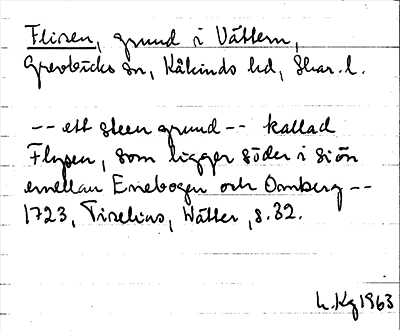 Flisen, grund i Vättern,
Grevbäcks sn, Kåkinds hd, Skar. l.
-- ett steen grund -- kallad
Flysen, som ligger söder i siön
emellan Enebogen och Omberg --
1723, Tiselius, Wätter, s. 32.
L. Kg 1963